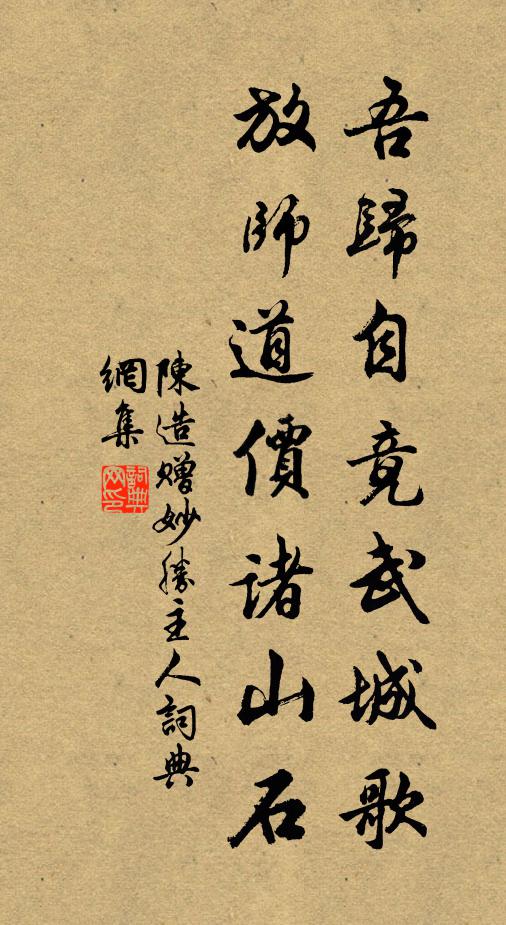 吾歸自竟武城歌
放師道價諸山石
陳造贈妙勝主人詞典
網集
詞典網印